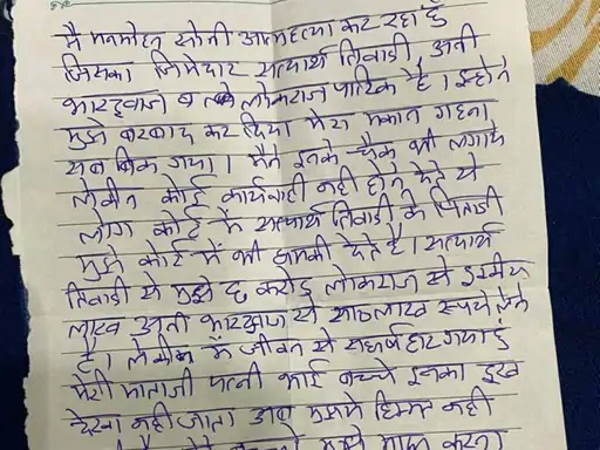 मै मनमोहन सोनी आत्महत्या कर रहा हूँ
जिसका जिमेदार सत्यार्थ तिवाडी, अनी
भारद्वाज व लोकराज पारिक है। इन्होने
मुझे बरबाद कर दिया मेरा मकान गहना
सब बिक गया। मैने इनके चैक भी लगाये
लेकीन कोई कार्यवाही नही होने देते ये
लोग कोर्ट मे सत्यार्थ तिवाडी के पिताजी
मुझे कोर्ट में भी धमकी देते है। सत्यार्थ
तिवाडी से मुझे करोड लोकराज से
लाख अनी भारद्वाज से साठलाख रूपये लेने
है। लेकीन में जीवन से संघर्ष हार गया हूं
मेरी माताजी पत्नी भाई बच्चे इनका दुख
देखा नही जाता अब मुझमे हिम्मत नही
मुझे माफ करना